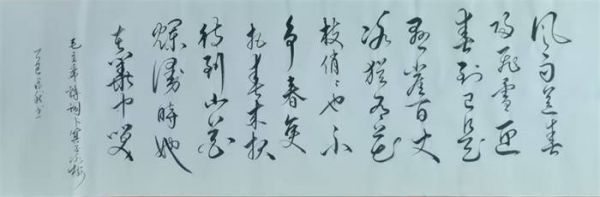 风雨送春
归飛雪迎
春到已是
悬崖百丈
冰猶有花
枝俏〻也不
争春只
把春来报
待到山花
爛漫時她
在叢中笑
毛主席詩词卜算子咏梅